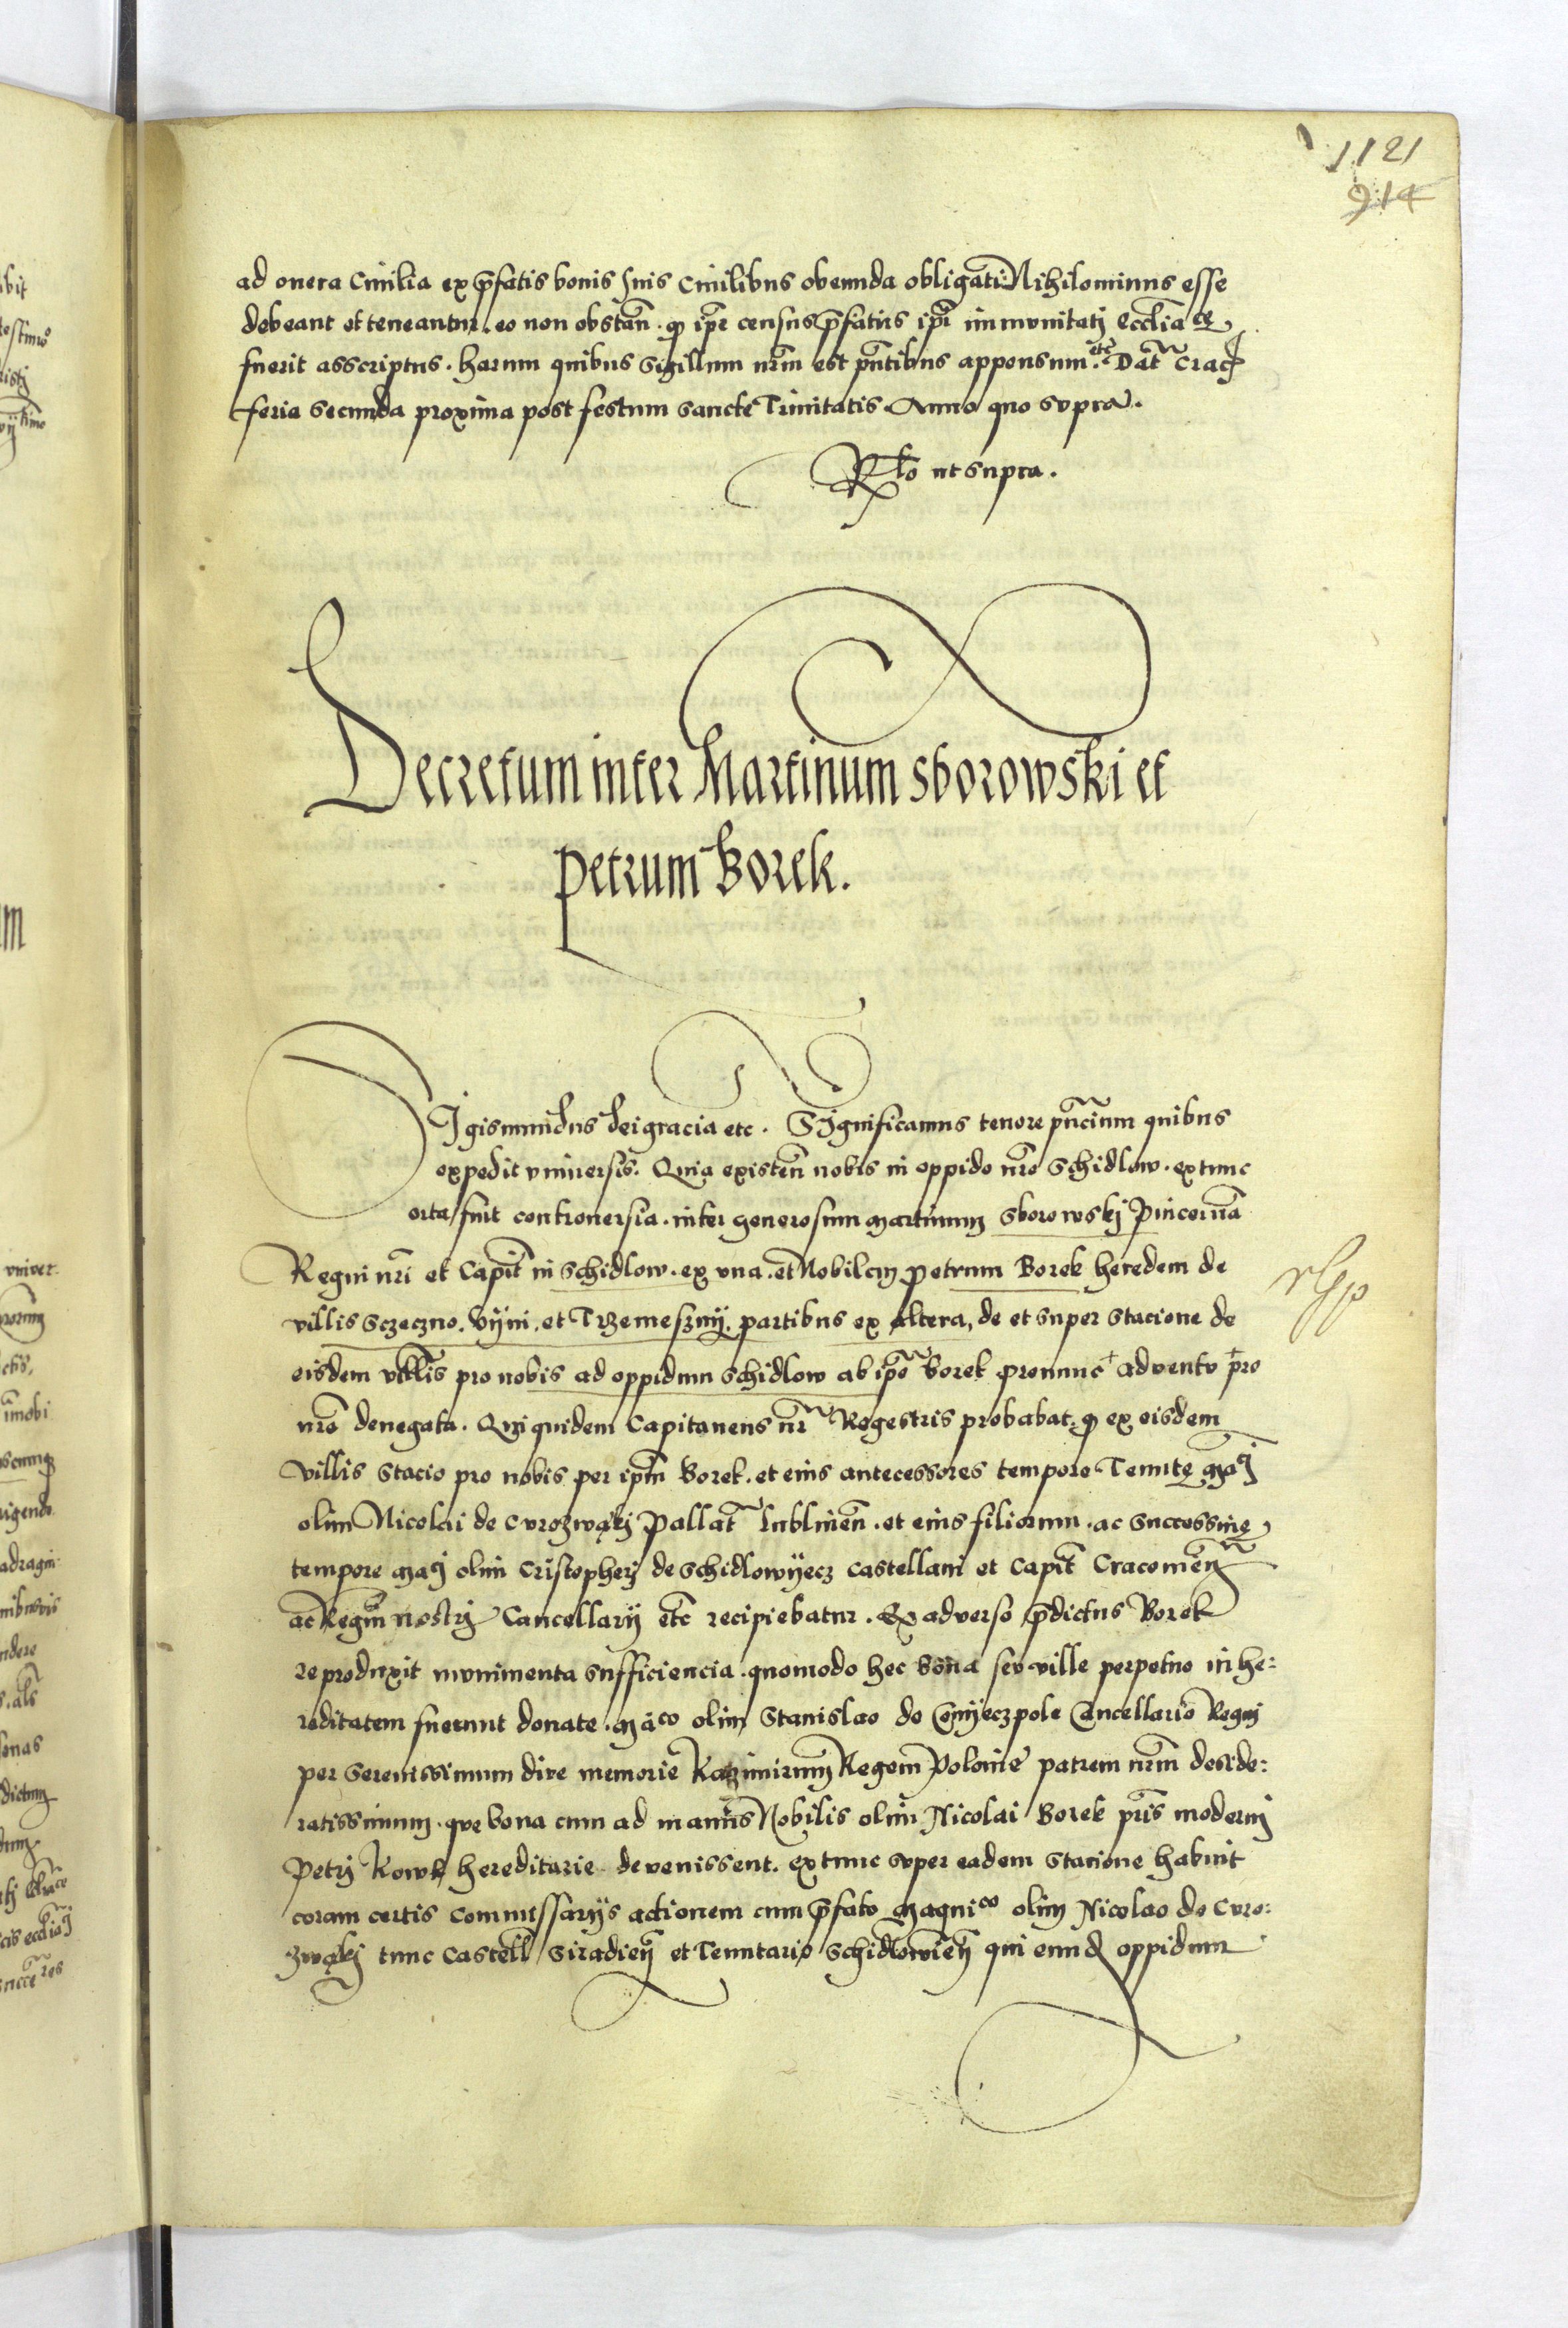 1121
914
ad onera Ciuilia ex p̄fatis bonis suis Ciuilibus obeunda obligati Nihilominus esse
debeant et teneantur. eo non obstan̄. ꝙ ip̄e census p̄fatus ip̄i immunitatj Eccl̄iasce
fuerit asscriptus. harum quibus sigillum nr̄m est pn̄tibus appensum. etc̄ Dat̄ Crac̄
feria secunda proxima post festum sancte Trinitatis Anno quo supra.
Rl̄o ut supra.
Decretum inter Martinum sborowski et
petrum Borek.
Igismundus dei gracia etc. Significamus tenore pn̄cium quibus
expedit vniuersis. Quia existen̄ nobis in oppido nr̄o Schidlow. extunc
orta fuit controuersia. inter generosum martinum sborowskj Pincernā
Regni nr̄i et Capit̄ in schidlow. ex vna. et Nobilem petrum Borek heredem de
villis sczeczno. Vyni. et Trzemesznij. partibus ex altera, de et super stacione de
eisdem villis pro nobis ad oppidum schidlow ab ip̄o Borek pronunc + aduentu + pro
nr̄o denegata. Qui quidem Capitaneus nr̄ Regestris probabat. ꝙ ex eisdem
villis stacio pro nobis per ip̄m Borek. et eius antecessores tempore Tenute mācj
olim Nicolai de Curozwąkj Pallat̄ lublinen̄. et eius filiorum. ac successiue
tempore macj olim Cristopherj de schidlowyecz castellani et Capit̄ Cracouien̄
ac Regni nostrj Cancellarij etc̄ recipiebatur. Ex aduerso p̄dictus Borek
reproduxit munimenta sufficiencia. quomodo hec bona seu ville perpetuo in he:
reditatem fuerunt donate. maco olim Stanislao de Conyeczpole Cancellario Regnj
per serenissimum diue memorie Kazimirum Regem Polonie patrem nr̄m deside:
ratissimum. que bona cum ad manus Nobilis olim Nicolai Borek pr̄is modernj
Petrj hereditarie deuenissent. extunc super eadem stacione habuit
coram certis commissarijs actionem cum p̄fato magnico olim Nicolao de Curo:
zwąkj tunc Castell̄ siradien̄ et Tenutario schidlowien̄ qui eund oppidum